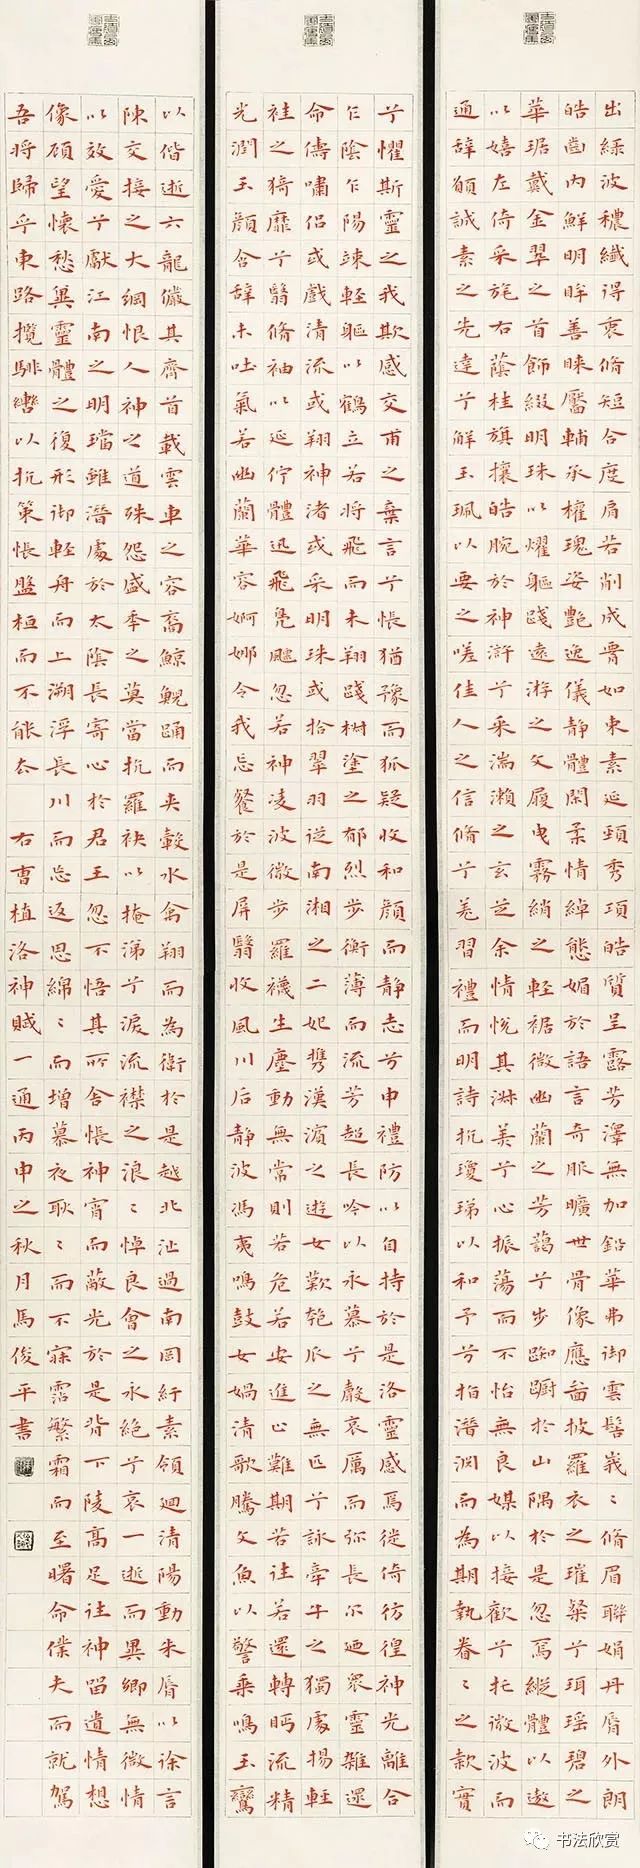 出緑波穠纖得衷脩短合度肩若削成霄如束素延頸秀項皓質呈露芳澤無加鉛華弗御雲髻峩〻脩眉聯娟丹脣外朗
皓齒內鮮明眸善睞靨輔承權瑰姿艷逸儀靜體閑柔情綽態媚於語言奇服曠世骨像應圖披羅衣之璀粲兮珥瑶碧之
華琚戴金翠之首飾綴明珠以燿軀踐遠游之文履曳霧綃之輕裾微幽蘭之芳藹兮步踟躕於山隅於是忽焉縱體以遨
以嬉左倚采旄右蔭桂旗攘皓腕於神滸兮采湍瀨之玄芝余情悅其淑美兮心振蕩而不怡無良媒以接歡兮托微波而
通辭願誠素之先達兮解玉珮以要之嗟佳人之信脩兮羗習禮而明詩抗瓊珶以和予兮指潛淵而為期執眷〻之款實
兮懼斯靈之我欺感交甫之棄言兮悵猶豫而狐疑收和顏而静志兮申禮防以自持於是洛靈感焉徙倚彷徨神光離合
乍陰乍陽竦輕軀以鶴立若將飛而未翔踐椒塗之郁烈步衡薄而流芳超長吟以永慕兮聲哀厲而弥長尒迺衆靈雜遝
命儔嘯侶或戲清流或翔神渚或采明珠或拾翠羽從南湘之二妃携漢濱之遊女歎匏瓜之無匹兮詠牽牛之獨處揚輕
袿之猗靡兮翳脩袖以延佇體迅飛鳧飄忽若神凌波微步羅襪生塵動無常則若危若安進止難期若往若還轉眄流精
光潤玉顏含辭未吐氣若幽蘭華容婀娜令我忘餐於是屏翳收風川后静波馮夷鳴鼓女媧清歌騰文魚以警乘鳴玉鸞
以偕逝六龍儼其齊首載雲車之容裔鯨鯢踊而夾轂水禽翔而為衛於是越北沚過南岡紆素領迴清陽動朱脣以徐言
陳交接之大綱恨人神之道殊怨盛年之莫當抗羅袂以掩涕兮淚流襟之浪〻悼良會之永絕兮哀一逝而異鄉無微情
以效愛兮獻江南之明璫雖潛處於太陰長寄心於君王忽不悟其所舍悵神宵而蔽光於是背下陵高足往神留遺情想
像顧望懷愁冀靈體之復形御輕舟而上溯浮長川而忘返思綿〻而增慕夜耿〻而不寐霑繁霜而至曙命僕夫而就駕
吾將歸乎東路攬騑轡以抗策悵盤桓而不能去 右曹植洛神賦一通丙申之秋月馬俊平書
书法欣赏